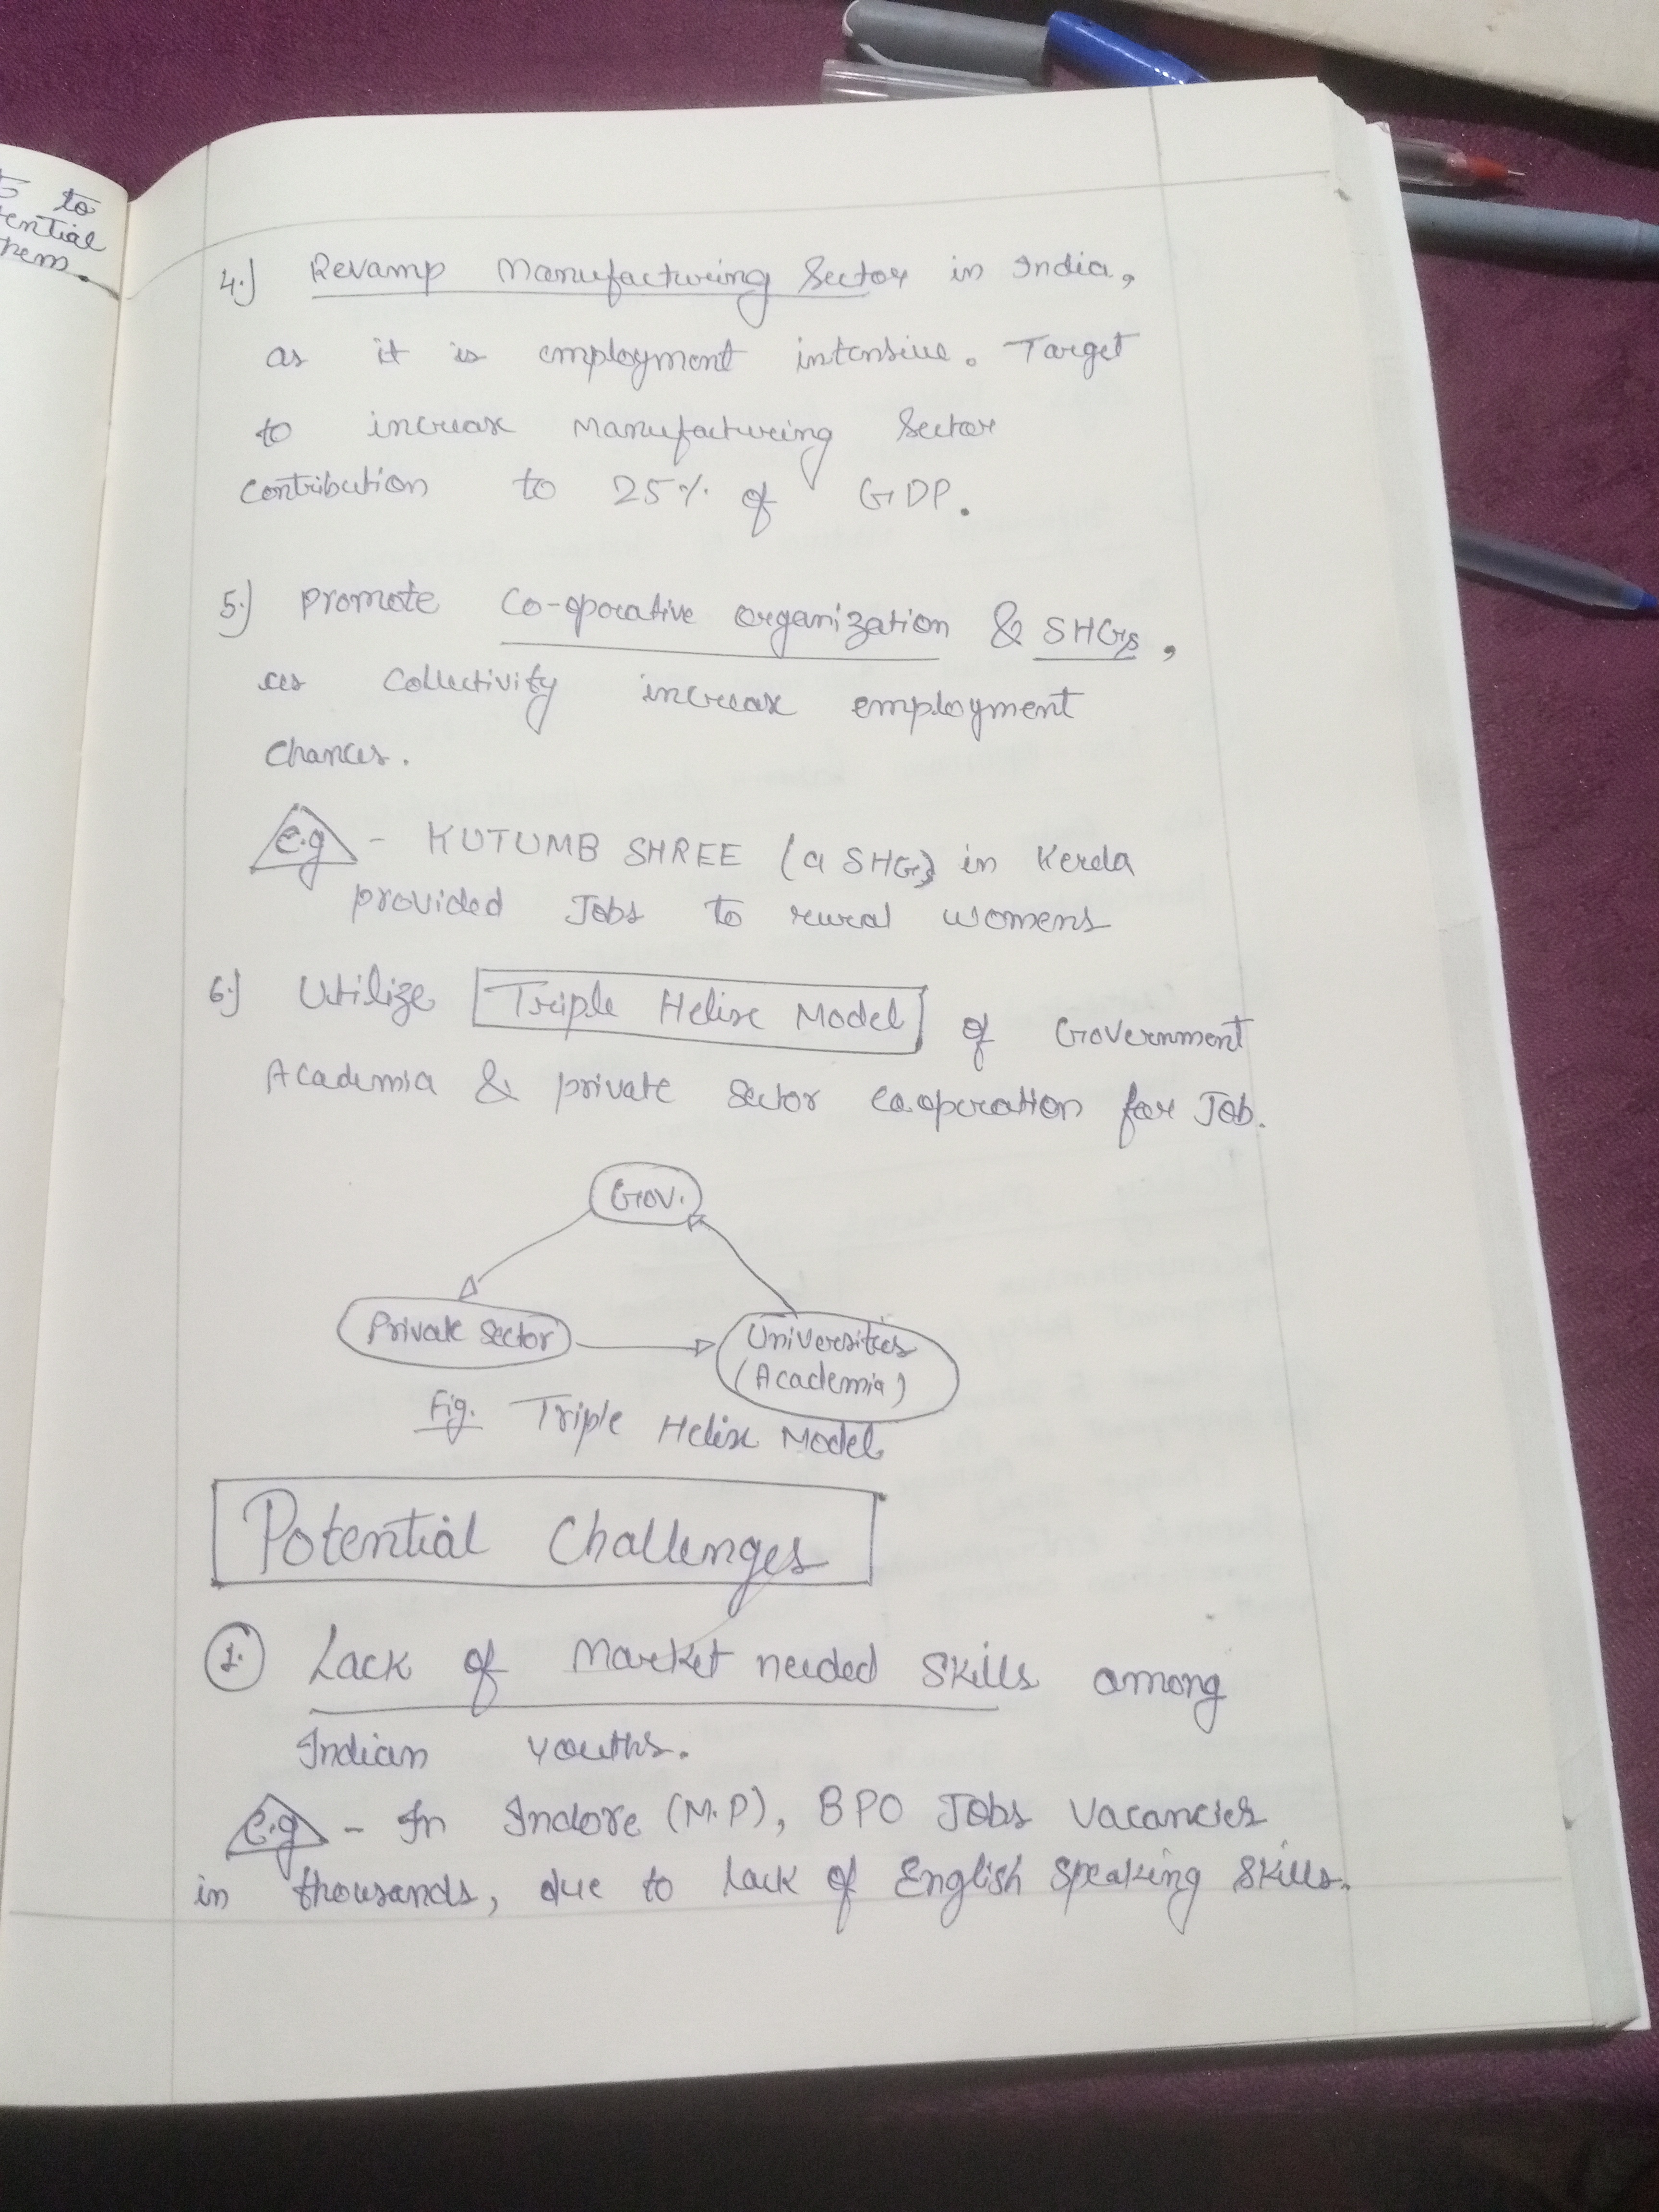 s to
ential
hem.
4.) Revamp Manufacturing Sector in India,
as it is employment intensive. Target
to increase manufacturing Sector
Contribution to 25% of GDP.
5.) Promote Co-oporative organization & SHGs,
as Collectivity increase employment
Chances.
e.g - KUTUMB SHREE (a SHG) in Kerela
provided Jobs to rural womens
6.) Utilize Triple Helix Model of Government
Academia & private sector cooperation for Job.
Gov.
Private Sector
Universities
(Academia)
Fig. Triple Helix Model
Potential Challenges
1. Lack of Market needed Skills among
Indian youths.
e.g - In Indore (M.P), BPO Jobs Vacancies
in thousands, due to lack of English Speaking Skills.